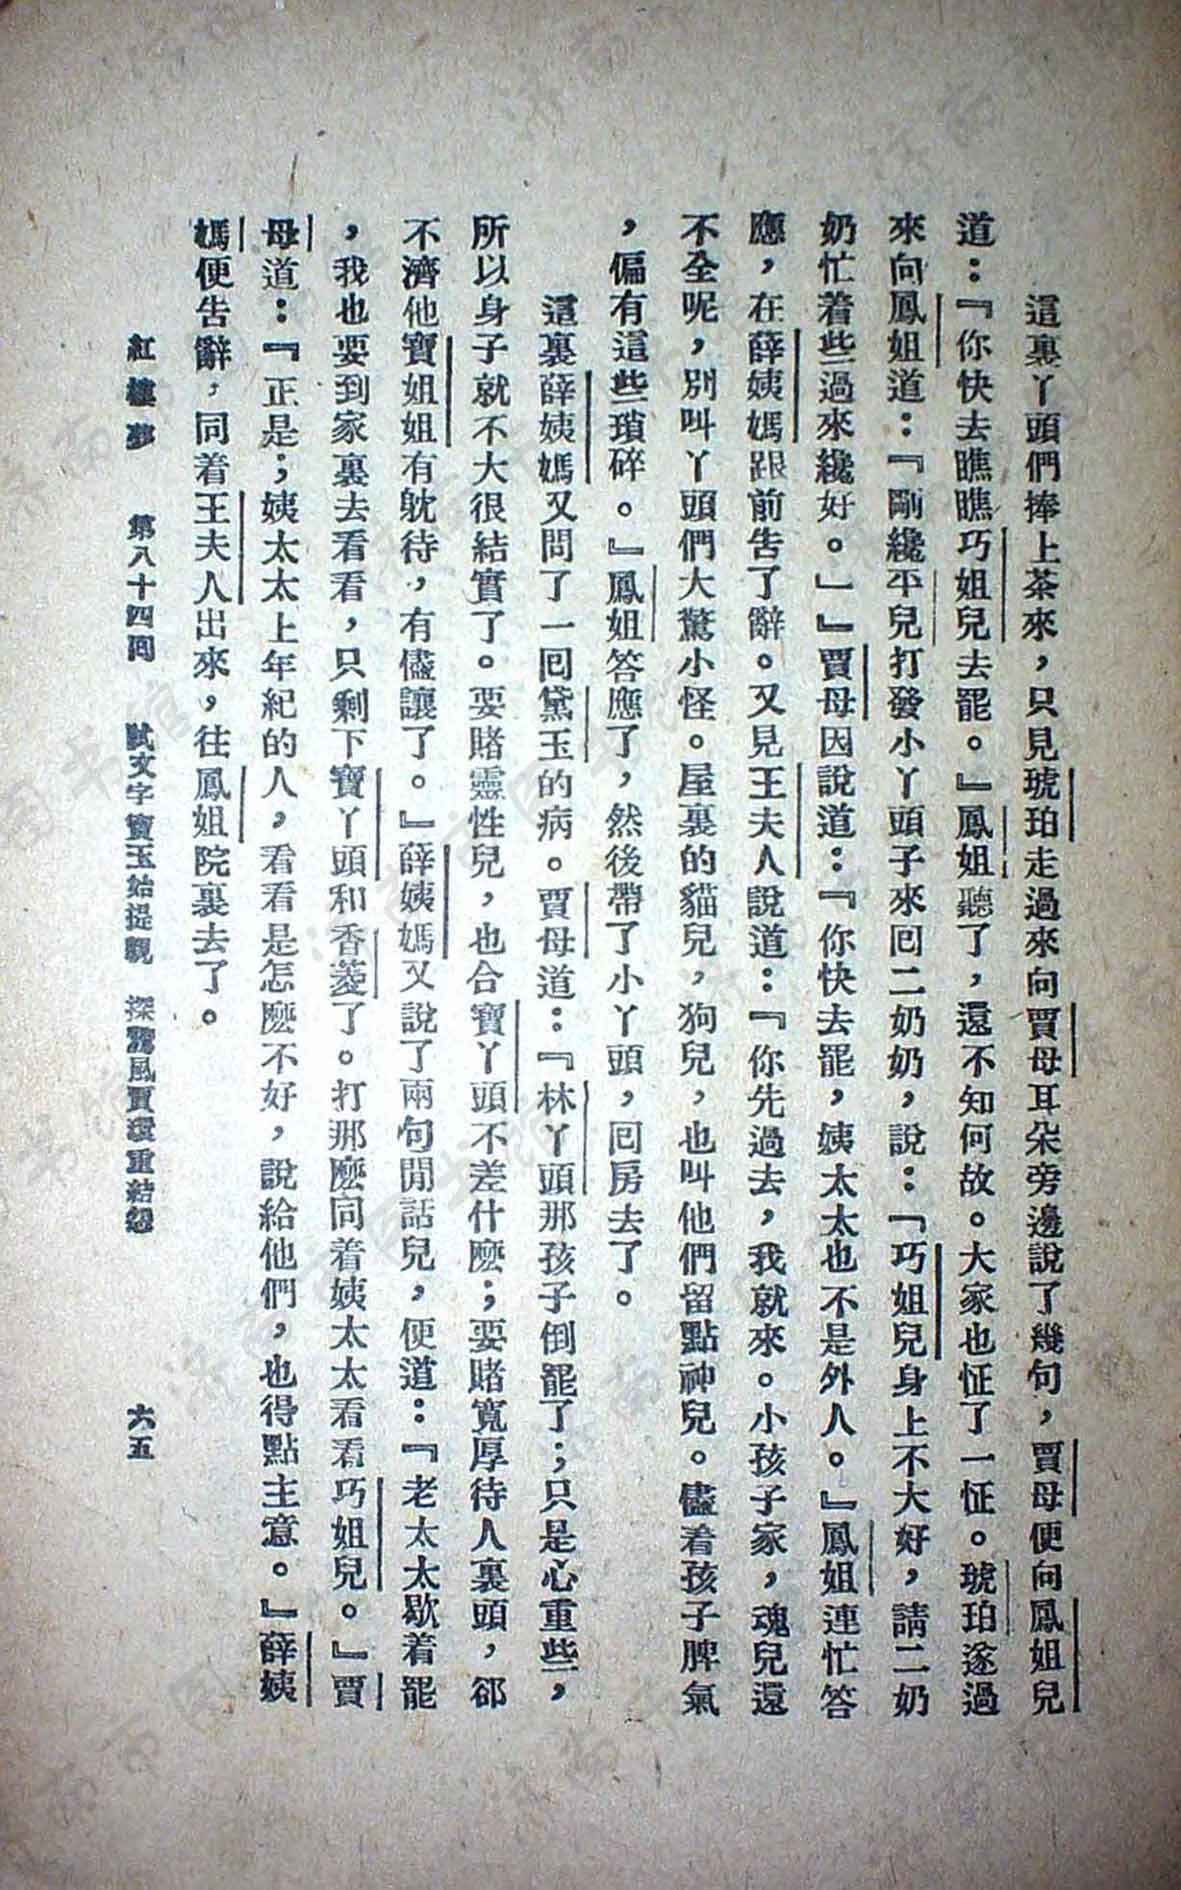 這裏丫頭們捧上茶來，只見琥珀走過來向賈母耳朵旁邊說了幾句，賈母便向鳳姐兒
道：『你快去瞧瞧巧姐兒去罷。』鳳姐聽了，還不知何故。大家也怔了一怔。琥珀遂過
來向鳳姐道：『剛纔平兒打發小丫頭子來回二奶奶，說：「巧姐兒身上不大好，請二奶
奶忙着些過來纔好。」』賈母因說道：『你快去罷，姨太太也不是外人。』鳳姐連忙答
應，在薛姨媽跟前告了辭。又見王夫人說道：『你先過去，我就來。小孩子家，魂兒還
不全呢，別叫丫頭們大驚小怪。屋裏的貓兒，狗兒，也叫他們留點神兒。儘着孩子脾氣
，偏有這些瑣碎。』鳳姐答應了，然後帶了小丫頭，回房去了。
這裏薛姨媽又問了一回黛玉的病。賈母道：『林丫頭那孩子倒罷了；只是心重些，
所以身子就不大很結實了。要賭靈性兒，也合寶丫頭不差什麼；要賭寬厚待人裏頭，卻
不濟他寶姐姐有躭待，有儘讓了。』薛姨媽又說了兩句閒話兒，便道：『老太太歇着罷
，我也要到家裏去看看，只剩下寶丫頭和香菱了。打那麼同着姨太太看看巧姐兒。』賈
母道：『正是；姨太太上年紀的人，看看是怎麼不好，說給他們，也得點主意。』薛姨
媽便告辭，同着王夫人出來，往鳳姐院裏去了。
紅樓夢　第八十四回　試文字寶玉始提親　探驚風賈環重結怨　六五